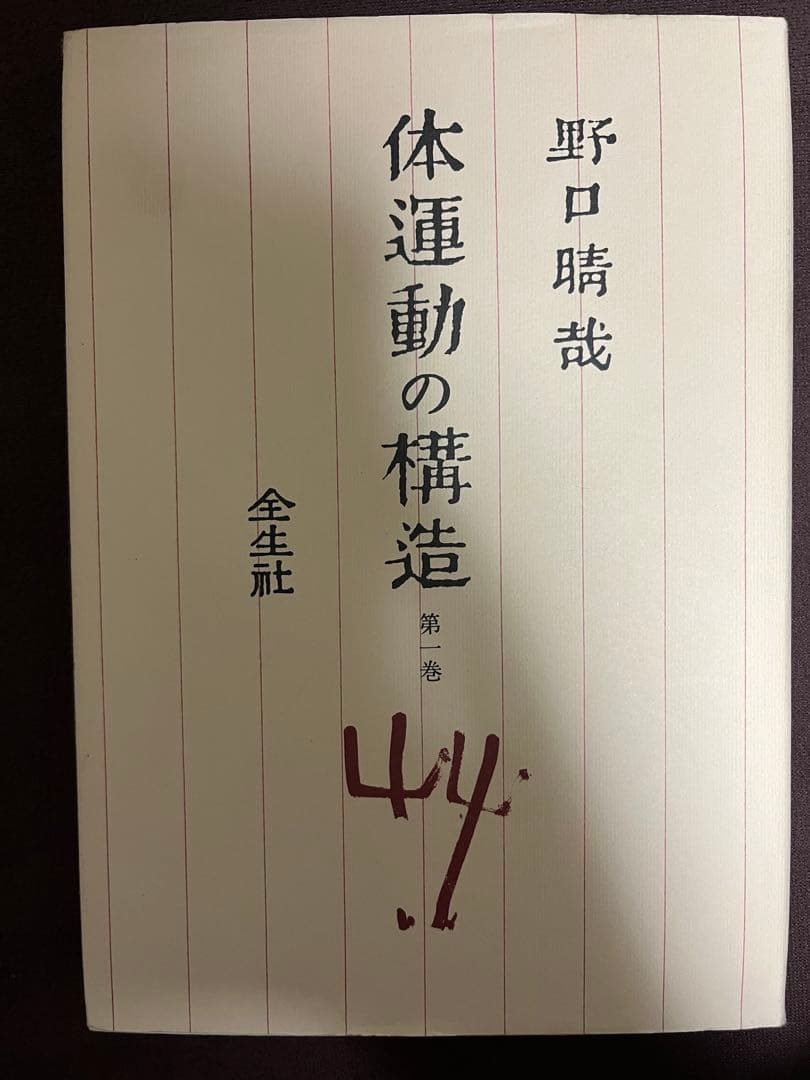 野口晴哉
体運動の構造 第一巻
全生社